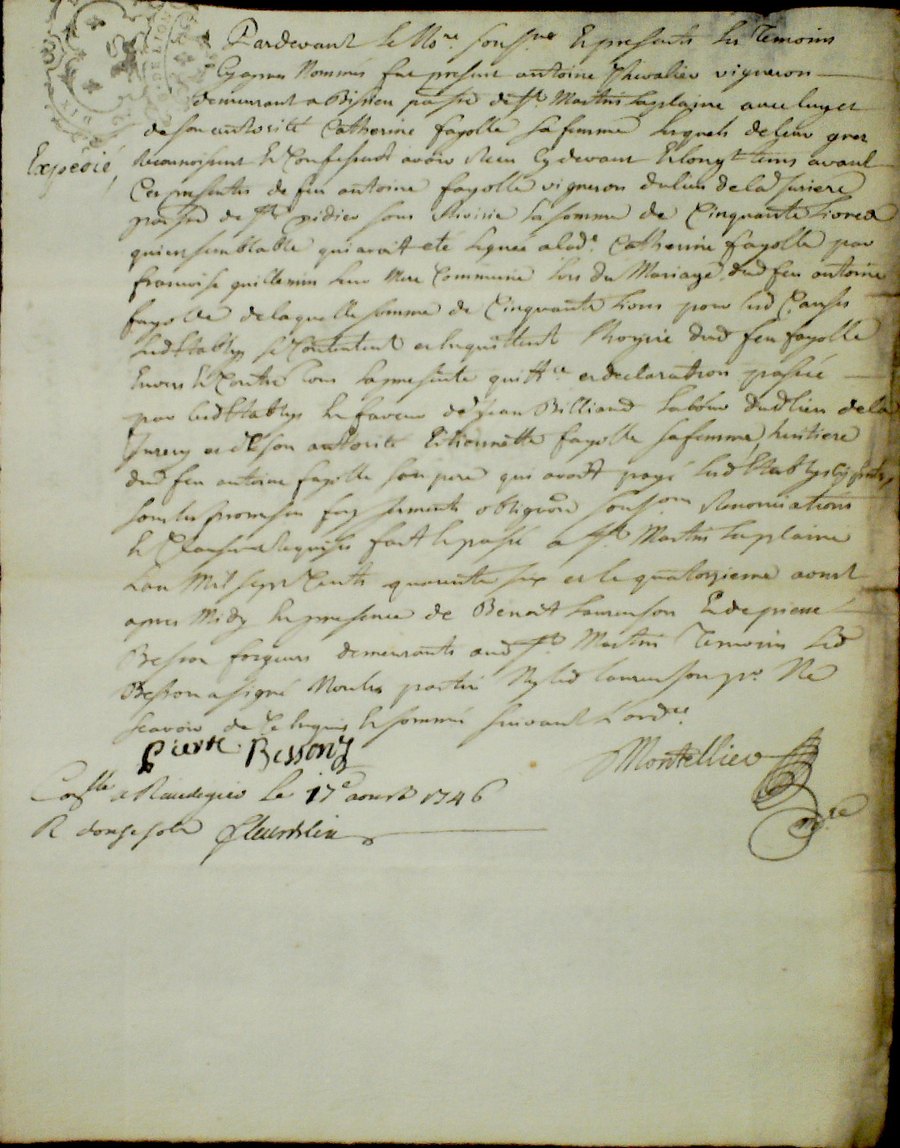 Pardevant le No.re soussne Et presents les Temoins
Cyapres Nommés fut present antoine Chevalier vigneron
demeurant a Bissieu parre de St Martin Laplaine avec luy et
de son authorité Catherine fayolle sa femme lesquels de leur gres
Expedié,
reconnoissent Et Confessent avoir Receu Cydevant Et longtems avant
Ces presentes de feu antoine fayolle vigneron du lieu de la
parre de St sous la somme de Cinquante Livres
qui avoit eté leguée a lade Catherine fayolle par
francoise guillemin leur Mere Commune lors du Mariage dud feu antoine
fayolle de laquelle somme de Cinquante Livres pour lesd Causes
lesd Etablys se Contentent et en quittent l'hoyrie dud feu fayolle
Envers Et Contre Tous la presente quittce et declaration passée
par lesd Etablys En faveur de Jean Billiaud labour dud lieu de la
et de son authorité Etiennette fayolle sa femme, heritiere
dud feu antoine fayolle son pere qui avoit payé lesd Etablys
sous les promesses serments obligaon sousson Renonciations
Et Clauses requises fait et passé a St Martin Laplaine
Lan Mil sept Cents quarente six et le quatorzieme aoust
apres Midy En presence de Benoit Laurenson Et de pierre
Besson forgeurs demeurants aud St Martin Temoins Led
Besson a signé Non les parties Ny led Laurenson pr Ne
scavoir de Ce Enquis Et sommé suivant l'ordce
pierre Besson
Montellier
Conllé a Rivedegier Le 17e aoust 1746
R douze sols
nore